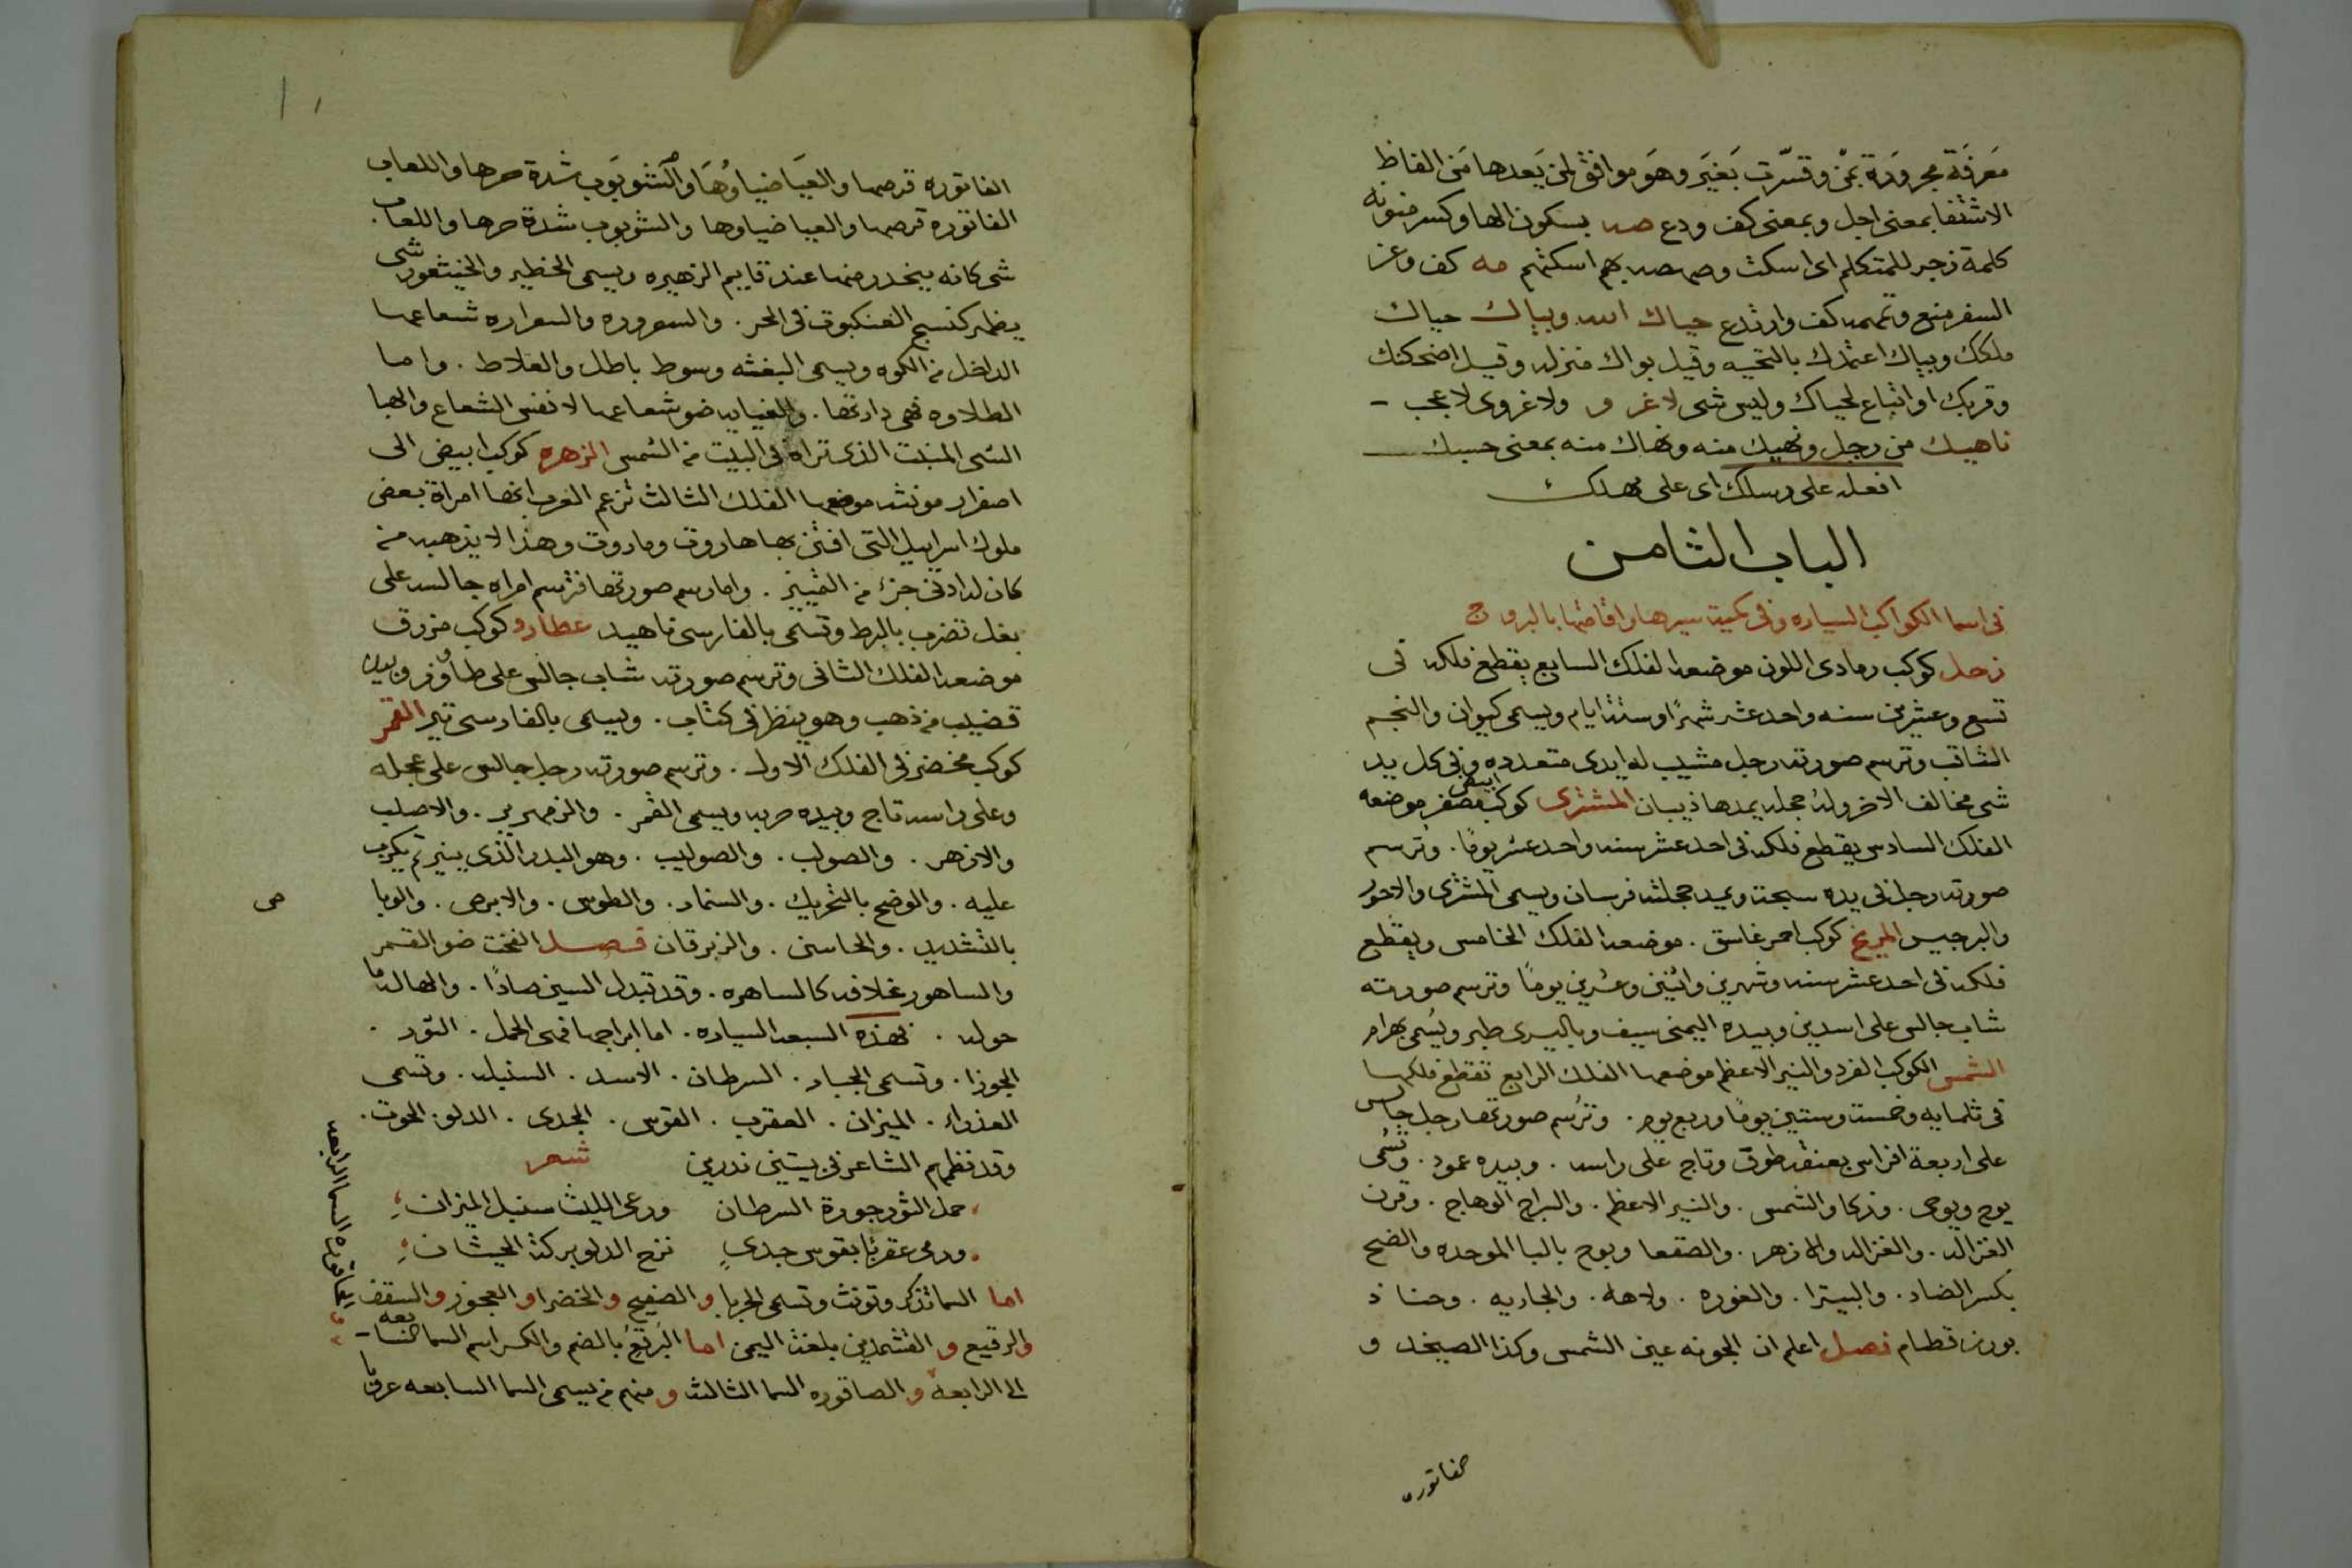 معرفة مجرورة بمن وفسرت بغير وهو موافق لمن يعدها من الفاظ
الاستثنا بمعنى اجل وبمعنى كف ودع صه بسكون الها وكسر منونه
كلمة زجر للمتكلم اى اسكت وصهصه بهم اسكتهم مه كف وعن
السفر منع وتمهمه كف وارتدع حياك الله وبياك حياك
ملكك وبياك اعتمدك بالتحيه وقيل بواك منزله وقيل اضحكك
وقربك او اتباع لحياك وليس شى لاغرو ولاغروى لا عجب
ناهيك من رجل ونهيك منه ونهاك منه بمعنى حسبك
افعله على رسلك اى على مهلك
الباب الثامن
فى اسما الكواكب السياره وفى كمية سيرها واقامتها بالبروج
زحل كوكب رمادى اللون موضعه الفلك السابع يقطع فلكه فى
تسع وعشرين سنه واحد عشر شهرًا وستة ايام ويسمى كيوان والنجم
الثاقب وترسم صورته رجل مشيب له ايدى متعدده وفى كل يد
شى مخالف الاخر وله عجله يمدها ذيبان المشترى كوكب ابيض مصفر موضعه
الفلك السادس يقطع فلكه فى احد عشر سنه واحد عشر يومًا . وترسم
صورته رجل فى يده سبحة ويمد عجلته فرسان ويسمى المشترى والاحور
والبرجيس المريخ كوكب احمر غاسق . موضعه الفلك الخامس ويقطع
فلكه فى احد عشر سنه وشهرين واثنين وعشرين يومًا وترسم صورته
شاب جالس على اسدين وبيده اليمنى سيف وباليسرى طير ويسمى بهرام
الشمس الكوكب الفرد والنير الاعظم موضعها الفلك الرابع تقطع فلكها
فى ثلمايه وخمسة وستين يومًا وربع يوم . وترسم صورتها رجل جالس
على اربعة افراس بعنقه طوق وتاج على راسه . وبيده عمود . وتسمى
يوح ويوحى . وذكا والشمس . والنير الاعظم . والسراج الوهاج . وقرن
الغزاله . والغزاله والازهر . والصقعا وبوح بالبا الموحده والضح
بكسر الضاد . والبيترا . والغوره . ولاهه . والجاريه . وحناذ
بوزن قطام فصل اعلم ان الجونه عين الشمس وكذا الصيخد و
الفاتوره قرصها والعيا ضياوها والشوبوب شدة حرها واللعاب
الفاتوره قرصها والعيا ضياوها والشوبوب شدة حرها واللعاب .
شى كانه ينحدر منها عند قايم الزهيره ويسمى الخطير والخيتعور شى
يظهر كنسج العنكبوت فى الحر . والسعروره والسعراره شعاعها
الداخل من الكوه ويسمى البغثه وسوط باطل والعلاط . واما
الطلاوه فهى دارتها . والغيايه ضو شعاعها لا نفس الشعاع والهبا
الشى المنبت الذى تراه فى البيت من الشمس الزهره كوكب ابيض الى
اصفرار مونثه موضعها الفلك الثالث تزعم العرب انها امراة بعض
ملوك اسراييل التى افتتن بها هاروت وماروت وهذا لا يذهبه من
كان له ادنى جزء من التمييز . واما رسم صورتها فترسم امراه جالسه على
بغل تضرب بالبربط وتسمى بالفارسى ناهيد عطارد كوكب مزرق
موضعه الفلك الثانى وترسم صورته شاب جالس على طاوس وبيده
قضيب من ذهب وهو ينظر فى كتاب . ويسمى بالفارسى تير القمر
كوكب مخضر فى الفلك الاول . وترسم صورته رجل جالس على عجله
وعلى راسه تاج وبيده حربه ويسمى القمر . والزمهرير . والاصلب
والازهر . والصولب . والصوليب . وهو البدر الذى ينير ثم يكرب
عليه . والوضح بالتحريك . والسنمار . والطوس . والابرص . والوبا
بالتشديد . والحاسن . والزبرقان فصل الفخت ضو القمر
ص
والساهور غلافه كالساهره . وقد تبدل السين صادًا . والهاله ما
حوله . فهذه السبعه السياره . اما ابراجها فهى الحمل . الثور .
الجوزا . وتسمى الجبار . السرطان . الاسد . السنبله . وتسمى
العذراء . الميزان . العقرب . القوس . الجدى . الدلو . الحوت .
وقد نظمهم الشاعر فى بيتين ندرين شعر
حمل الثور جوزة السرطان ورعى الليث سنبل الميزان
ورمى عقربًا بقوس جدىٍ نزح الدلو بركة الحيتان
اما السما تذكر وتونث وتسمى الجربا والصفيح والخضرا والعجوز والسقف
والرقيع و بلغة اليمن اما البرقع بالضم والكسر اسم السما
الى الرابعه والصاقوره السما الثالثه ومنهم من يسمى السما السابعه عروبا
السما الرابعه